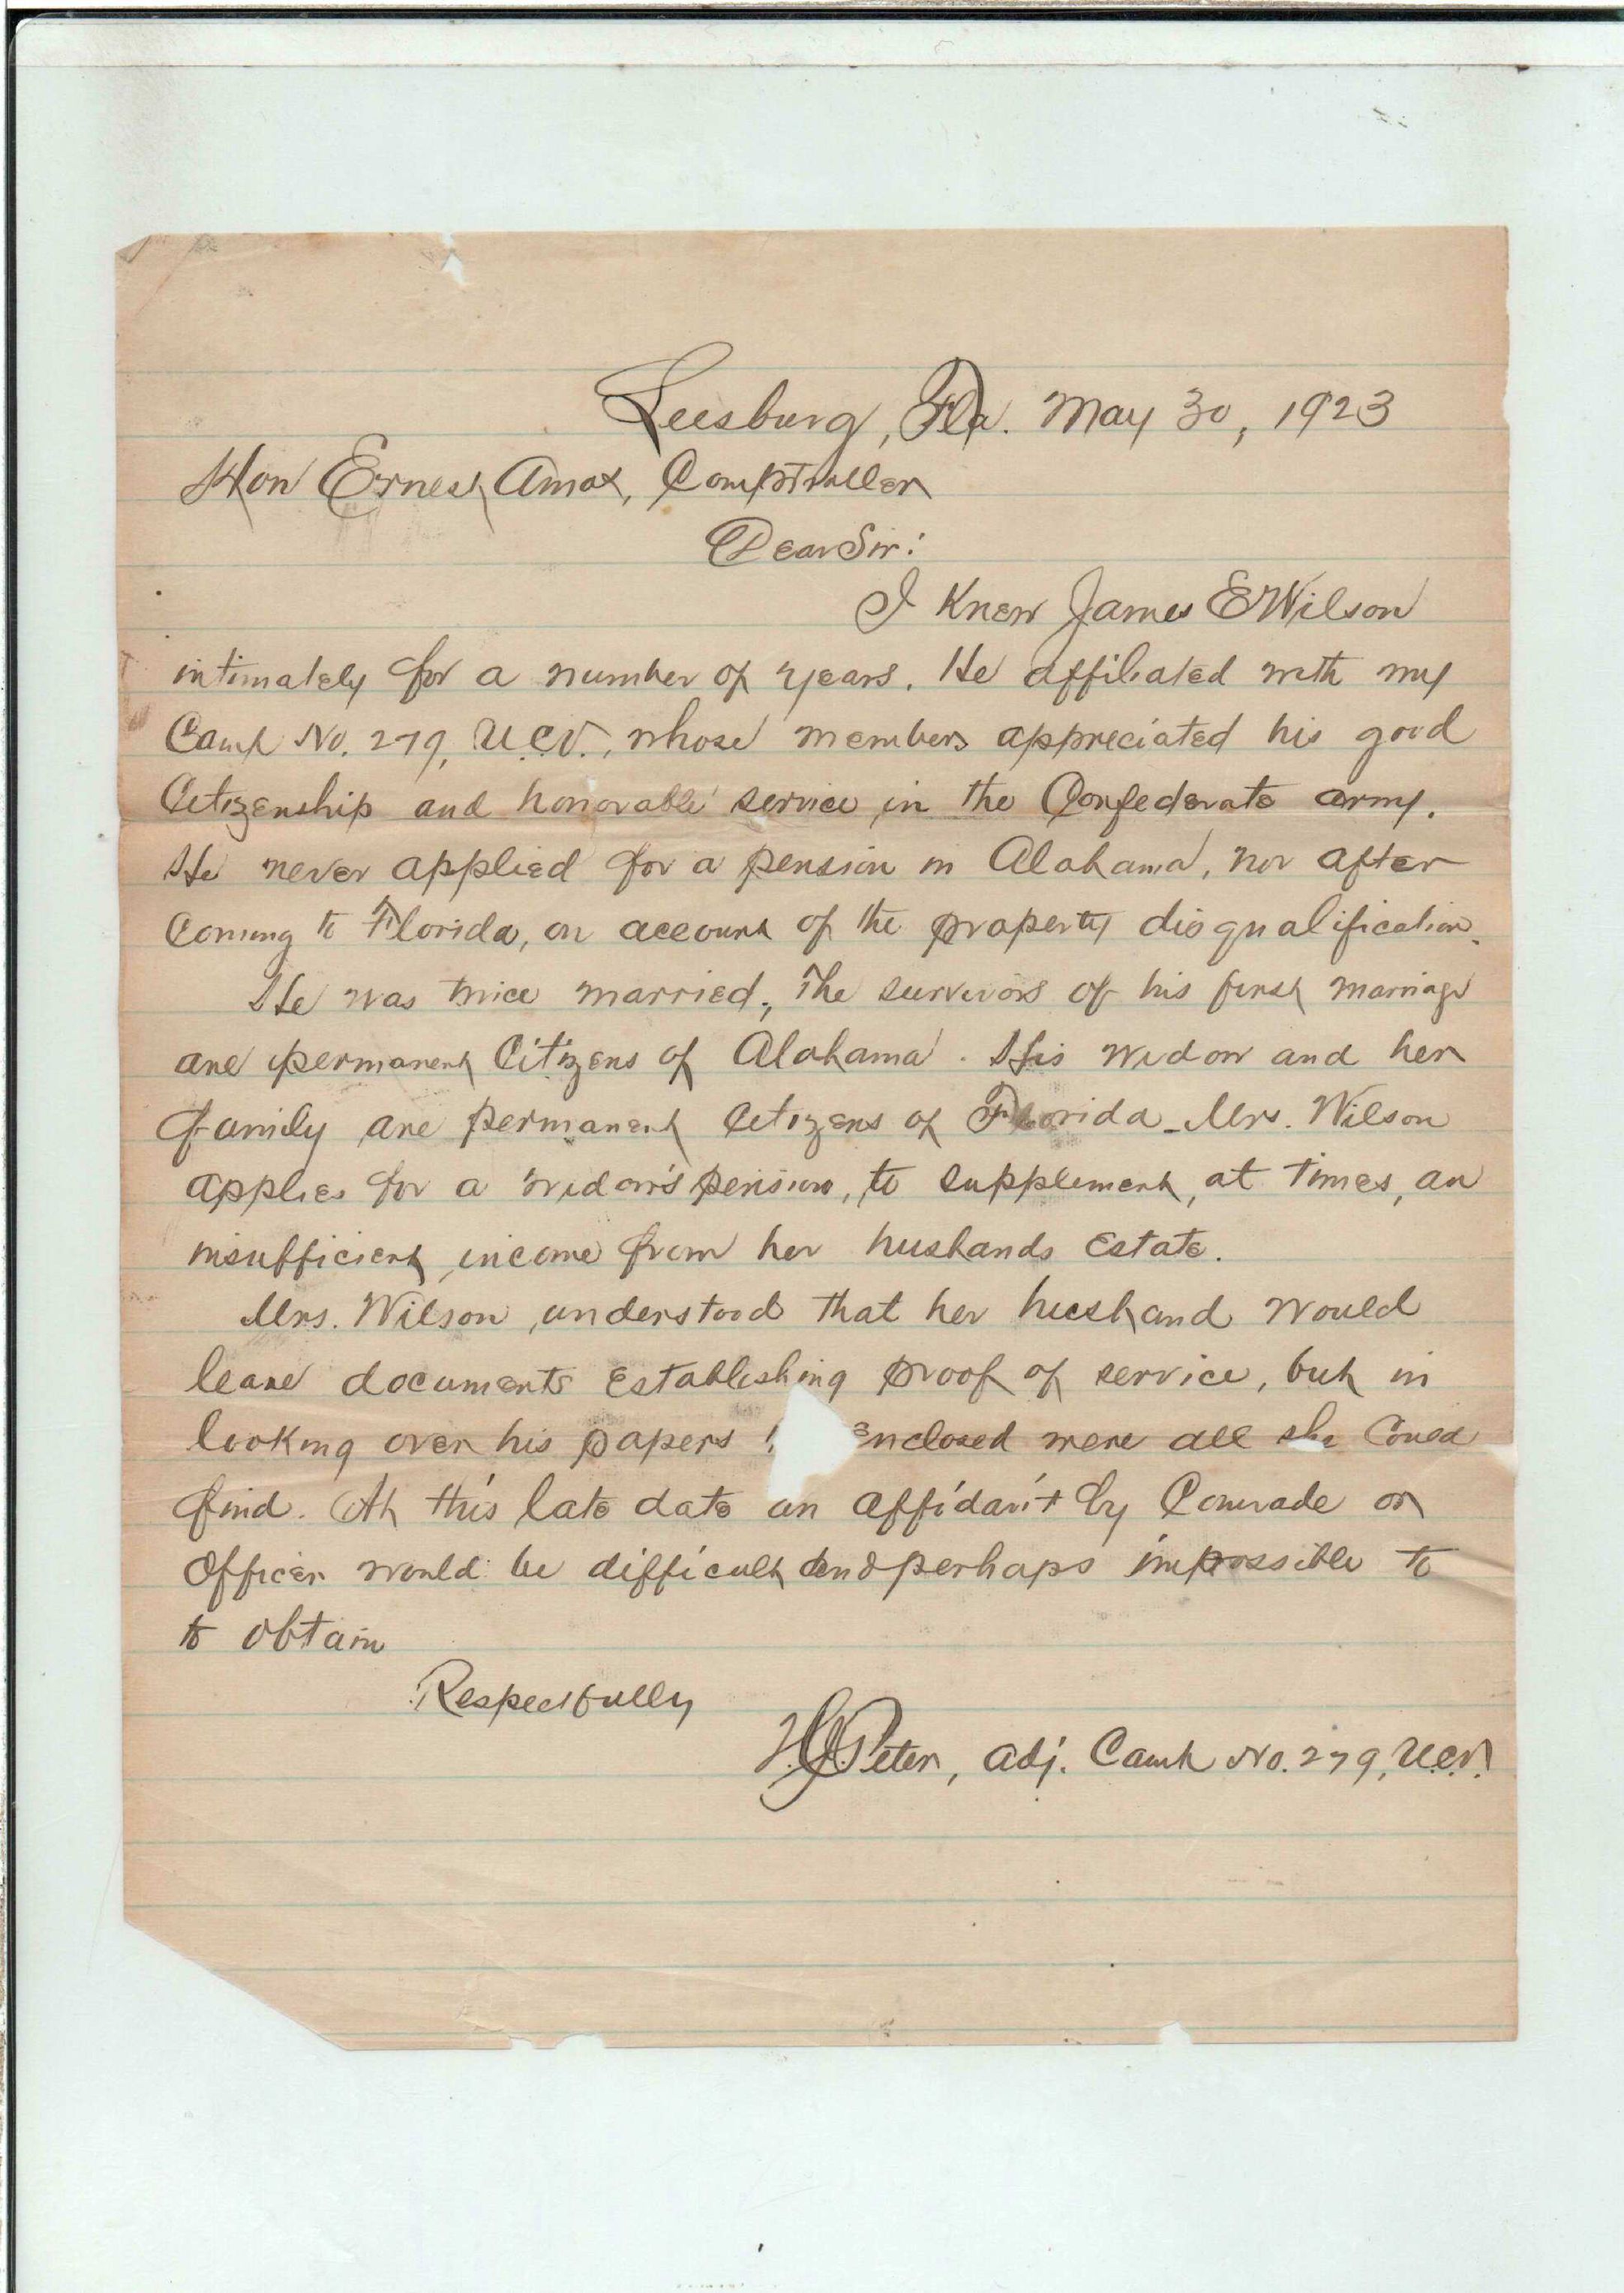 Leesburg, Fla. May 30, 1923
Hon Ernest Amos, Comptroller
Dear Sir:
I knew James E Wilson
intimately for a number of years. He affiliated with my
Camp No. 279, U.C.V., whose members appreciated his good
Citizenship and honorable service in the Confederate army.
He never applied for a pension in Alabama, nor after
coming to Florida, on account of the property disqualification.
He was twice married; The survivors of his first marriage
are permanent Citizens of Alabama. His widow and her
family are permanent Citizens of Florida_Mrs. Wilson
applies for a widow's pension, to supplement, at times, an
insufficient income from her husbands Estate.
Mrs. Wilson understood that her husband would
leave documents Establishing proof of service, but in
looking over his papers enclosed were all she could
find. At this late date an affidavit by Comrade or
Officer would be difficult and perhaps impossible to
to obtain
Respectfully
Peter, Adj. Camp No. 279, U.C.V.